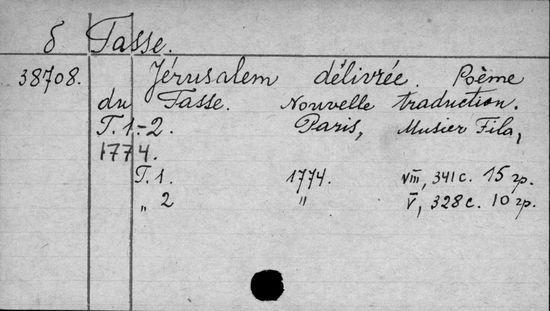 δ Tasse.
38708. Jérusalem délivrée. Poème
du Tasse. Nouvelle traduction.
T. 1.-2. Paris, Musier Fils,
1774.
T. 1. 1774. VIII, 341 с. 15 гр.
„ 2 " V, 328 с. 10 гр.